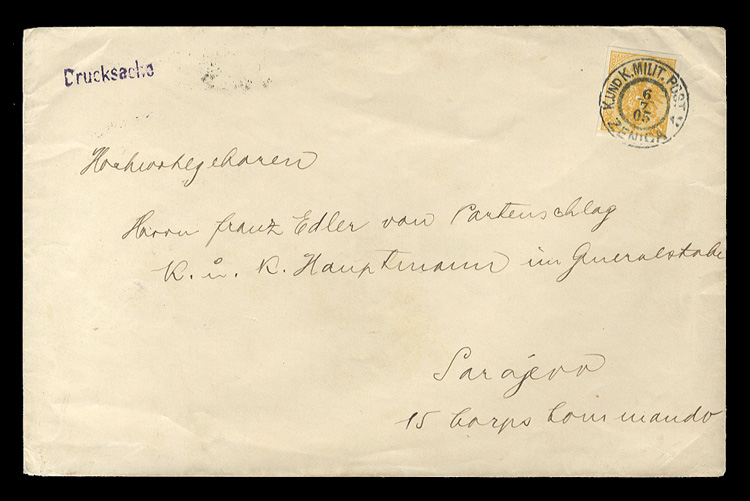 Drucksache
K. UND K. MILIT. POST
6
7
05
ZENICA
Hochwohlgeboren
Herrn Franz Edler von Partenschlag
K. u. K. Hauptmann im Generalstabe
Sarajevo
15 Corps Commando